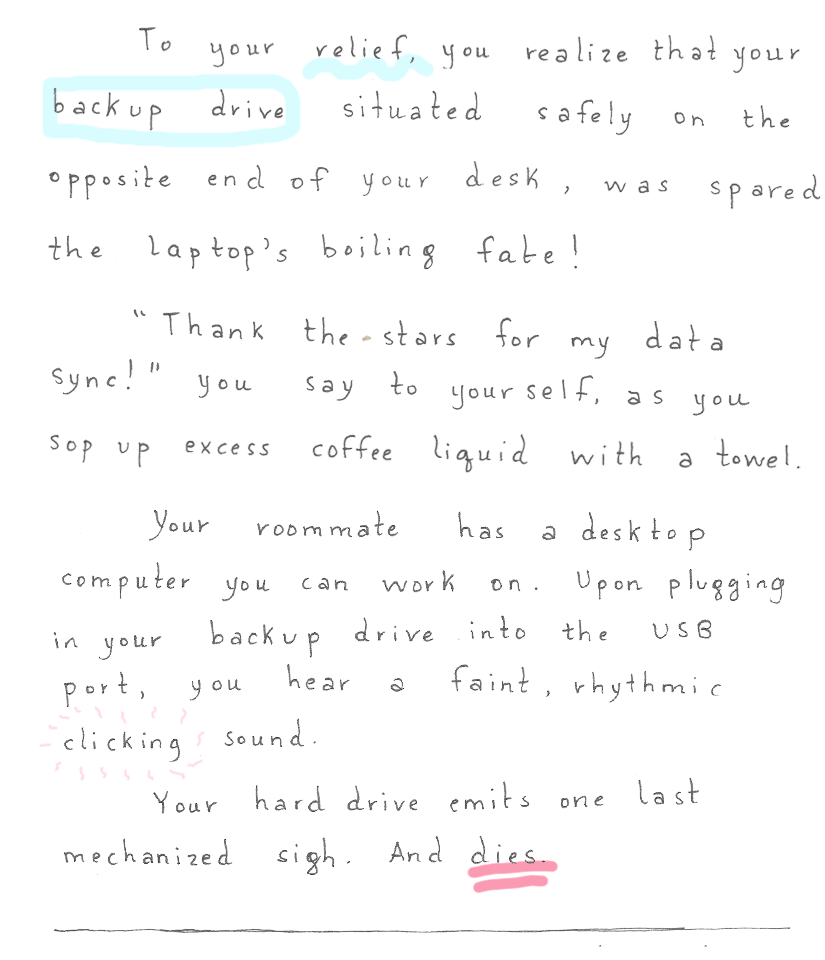 To your relief, you realize that your
backup drive situated safely on the
opposite end of your desk, was spared
the laptop's boiling fate!
"Thank the stars for my data
sync!" you say to yourself, as you
sop up excess coffee liquid with a towel.
Your roommate has a desktop
computer you can work on. Upon plugging
in your backup drive into the USB
port, you hear a faint, rhythmic
clicking sound.
Your hard drive emits one last
mechanized sigh. And dies.